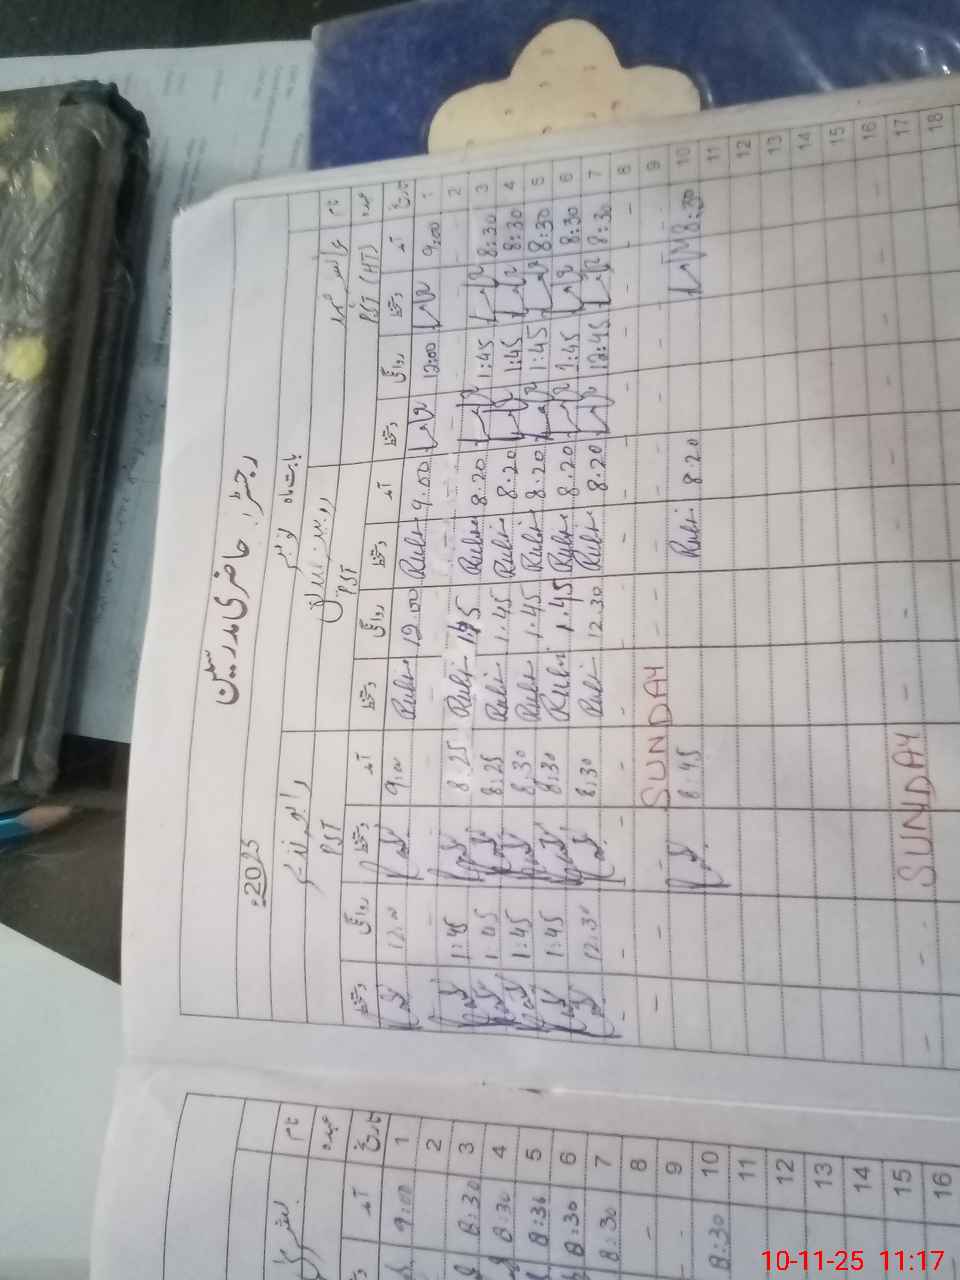 رجسٹر حاضری مدرسین
2025ء بابت ماہ نومبر
نام
عہدہ PST (HT) PST PST
تاریخ آمد دستخط روانگی دستخط آمد دستخط روانگی دستخط آمد دستخط روانگی دستخط
1 9:00 12:00 9.00 Rubi 12.00 Rubi 9:00 12:00
2
3 8:30 1:45 8.20 Rubi 1:45 Rubi 8:25 1:45
4 8:30 1:45 8.20 Rubi 1.45 Rubi 8:25 1:45
5 8:30 1:45 8.20 Rubi 1.45 Rubi 8.30 1:45
6 8:30 1:45 8.20 Rubi 1.45 Rubi 8:30 1:45
7 8:30 12:45 8.20 Rubi 12.30 Rubi 8:30 12:30
8 - - - - - - - -
9 - - - - SUNDAY - -
10 8:30 8.20 Rubi 8:45
11
12
13
14
15
16
17 - - - SUNDAY - - -
18
نام
عہدہ
تاریخ آمد
1 9:00
2
3 8:30
4 8:30
5 8:30
6 8:30
7 8:30
8 -
9 -
10 8:30
11
12
13
14
15
16
10-11-25 11:17